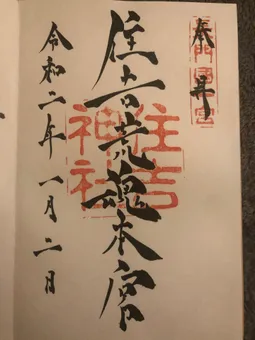 奉拝
長門國一宮
住吉荒魂本宮
住吉
神社
令和二年一月二日